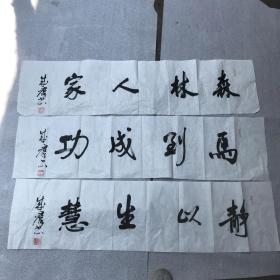 森林人家
馬到成功
静以生慧